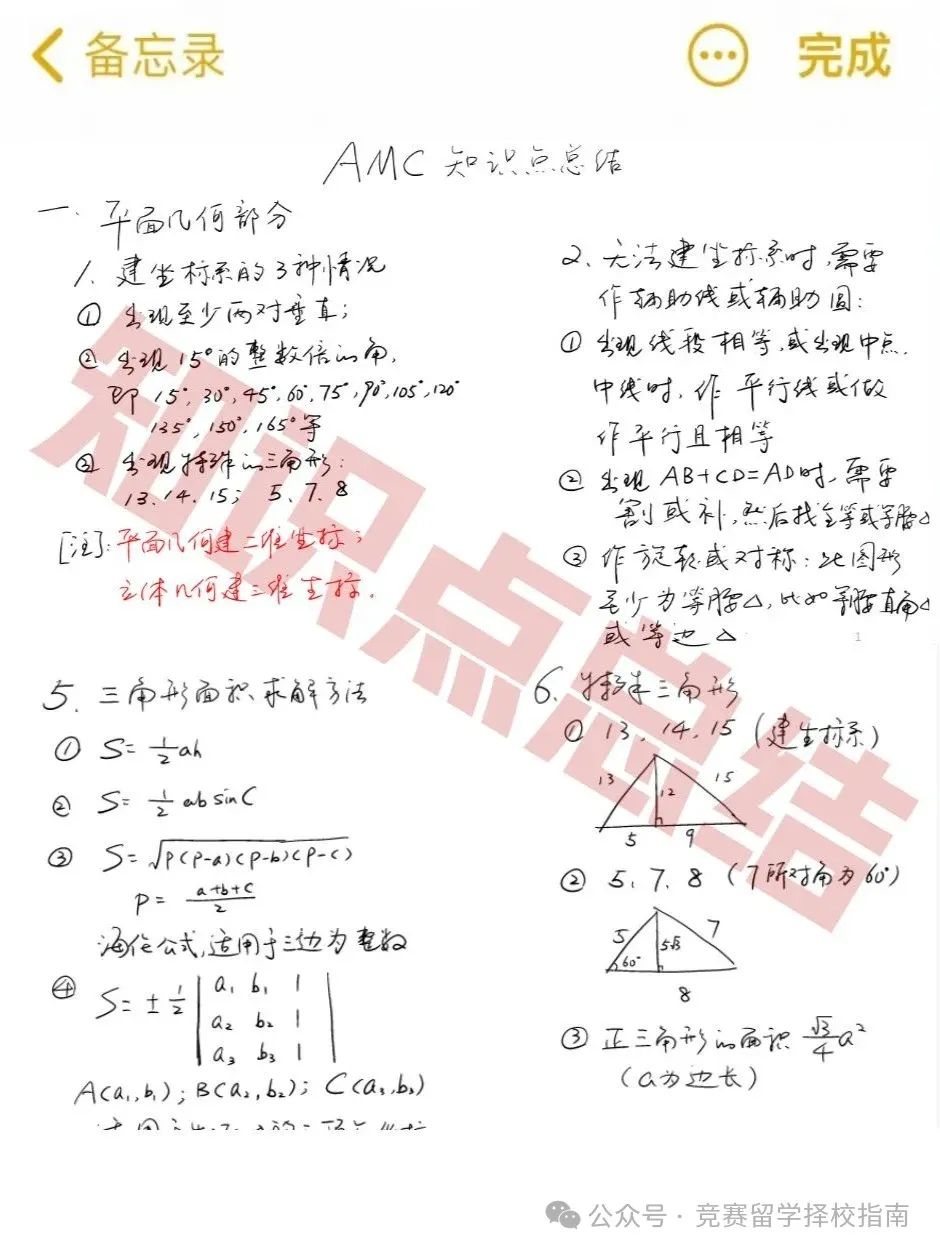 备忘录
完成
AMC 知识点总结
一、平面几何部分
1、建坐标系的3种情况
① 出现至少两对垂直;
② 出现15°的整数倍的角,
即 15°, 30°, 45°, 60°, 75°, 90°, 105°, 120°
135°, 150°, 165°等
③ 出现特殊的三角形:
13、14、15; 5、7、8
[注]:平面几何建二维坐标;
立体几何建三维坐标.
2、无法建坐标系时,需要
作辅助线或辅助圆:
① 出现线段相等,或出现中点.
中线时,作平行线或做
作平行且相等
② 出现 AB+CD=AD时,需要
割或补,然后找全等或等腰△
③ 作旋转或对称:此图形
至少为等腰△,比如等腰直角△
或等边△
1
5、三角形面积求解方法
① S=½ah
② S=½absinC
③ S=√P(P-a)(P-b)(P-c)
P=(a+b+c)/2
海伦公式,适用于三边为整数
④ S=±½ | a₁ b₁ 1
a₂ b₂ 1
a₃ b₃ 1 |
A(a₁,b₁); B(a₂,b₂); C(a₃,b₃)
6、特殊三角形
① 13、14、15 (建坐标系)
13 12 15
5 9
② 5、7、8 (7所对角为60°)
5 5√3 7
60°
8
③ 正三角形的面积 √3/4 a²
(a为边长)
知识点总结
公众号·竞赛留学择校指南